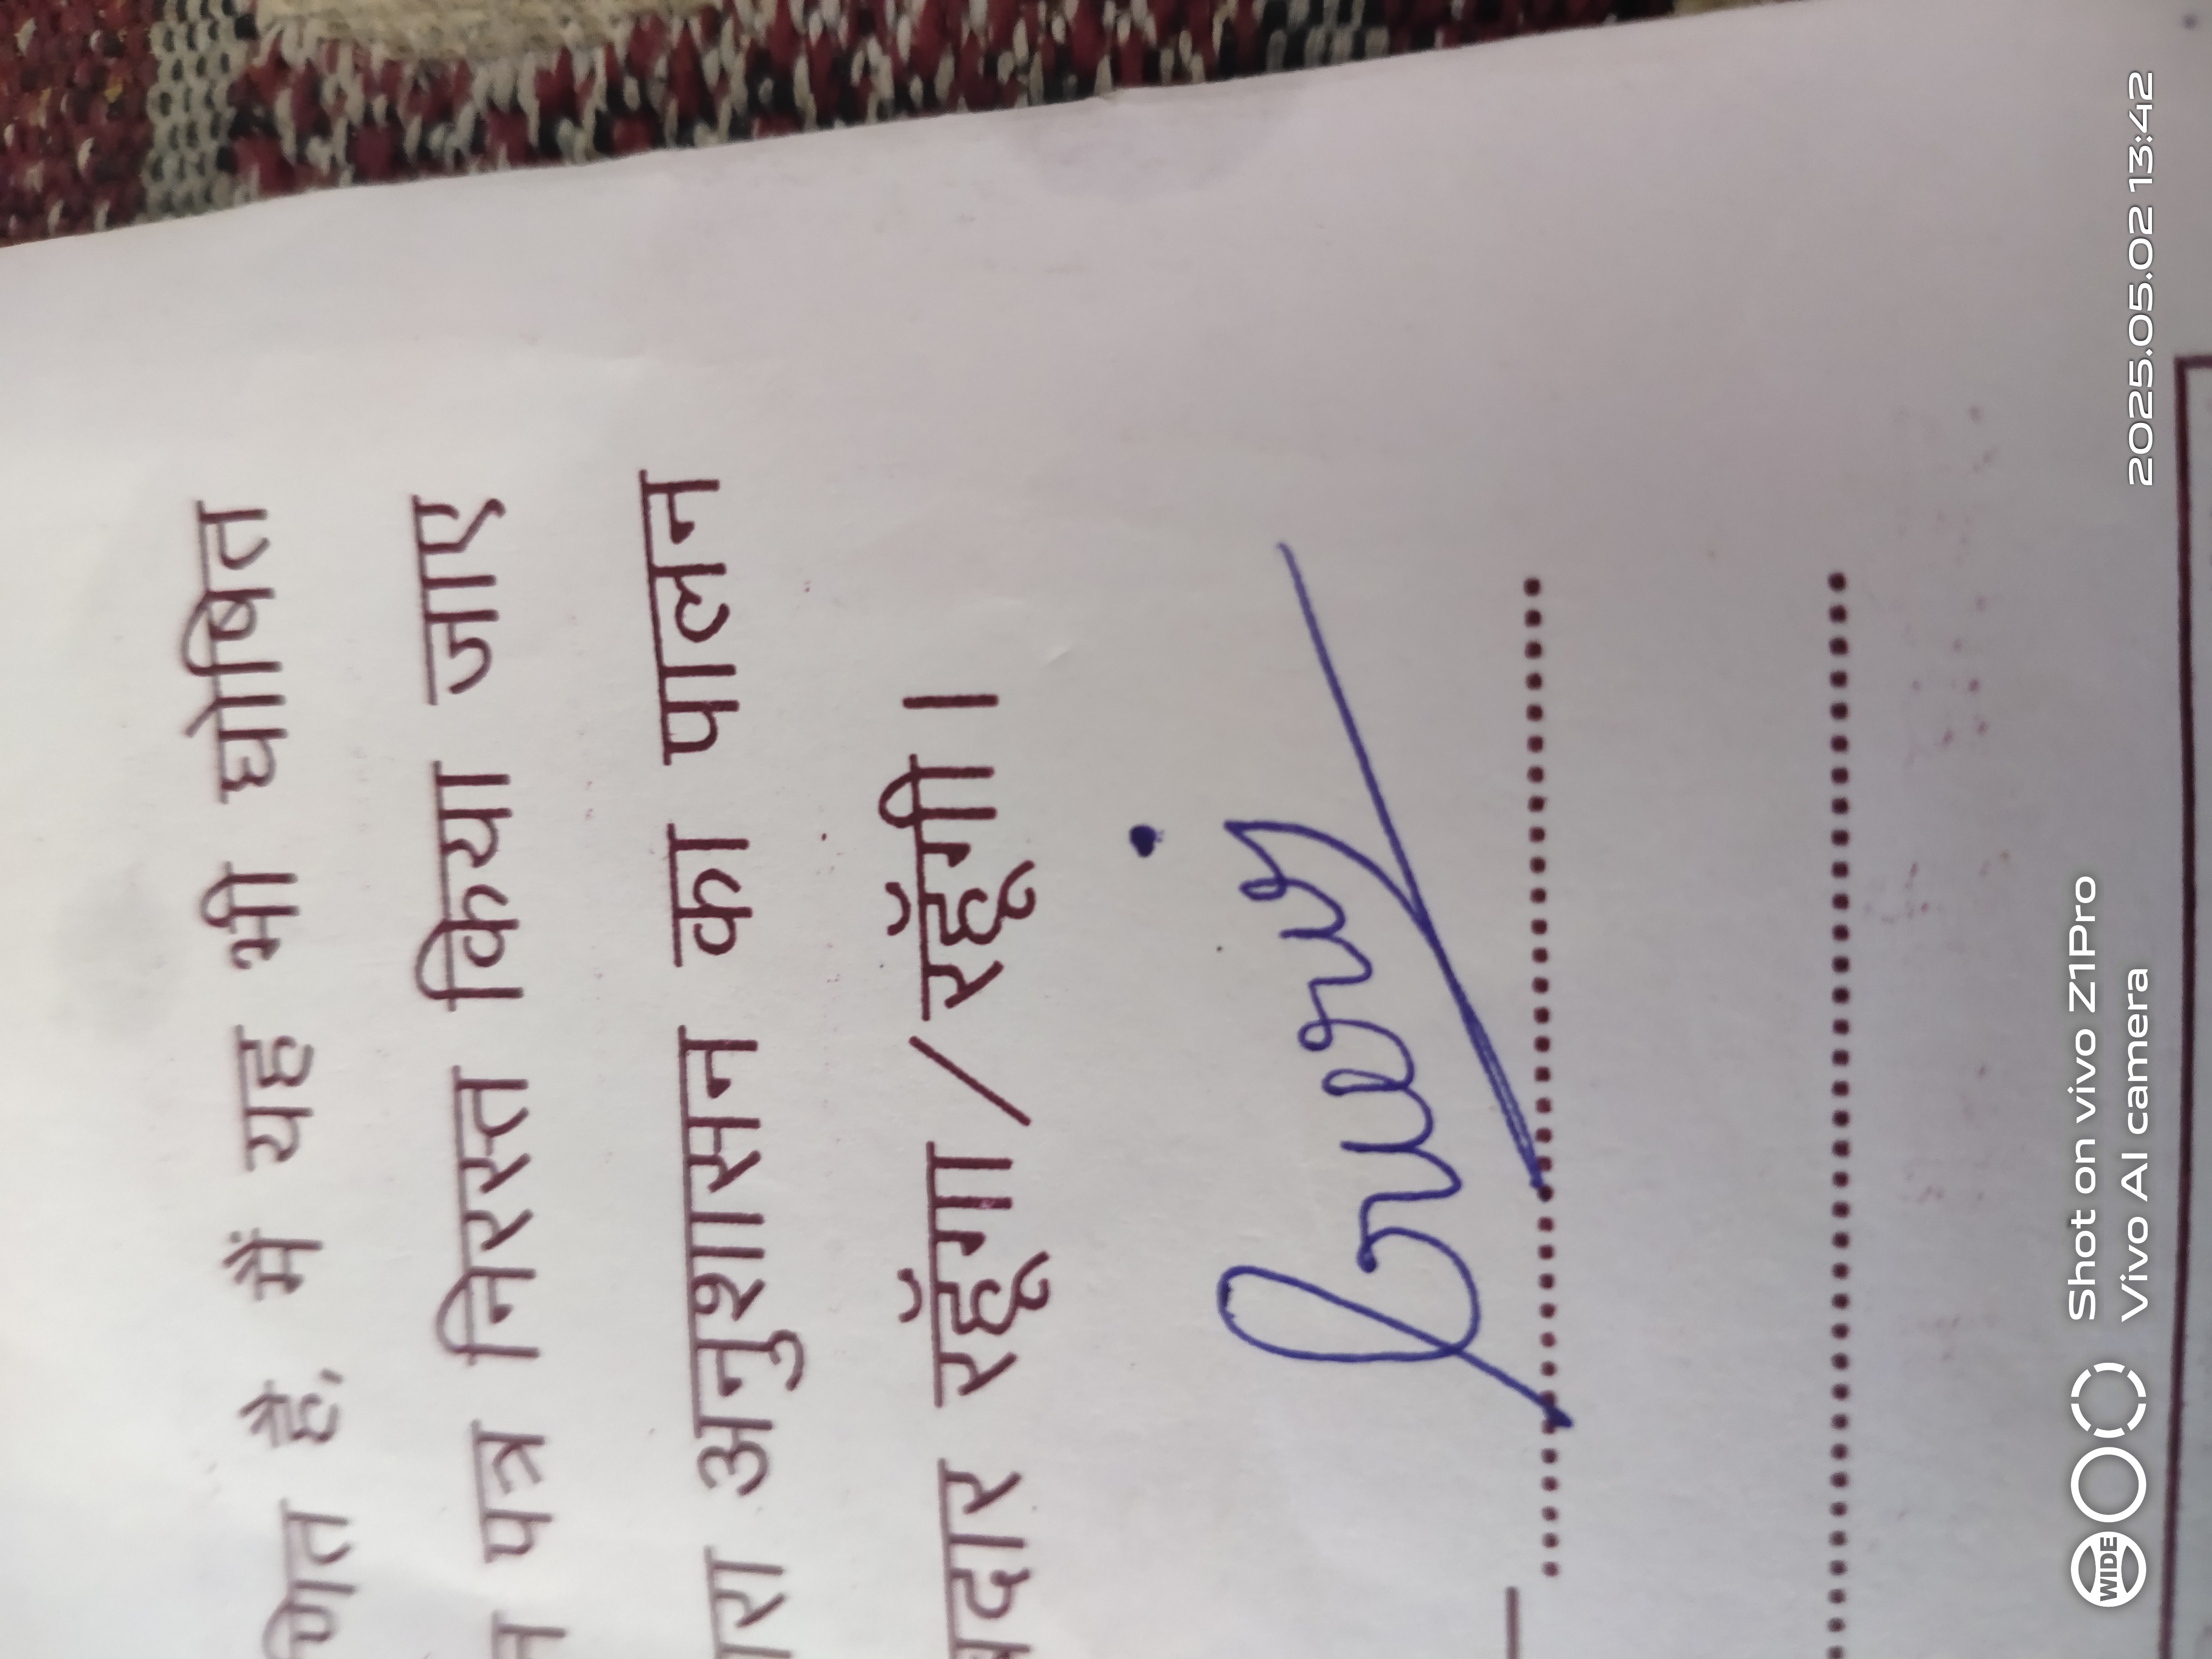 है, मैं यह भी घोषित
पत्र निरस्त किया जाए
अनुशासन का पालन
रहूँगा / रहूँगी।
Shot on vivo Z1Pro
Vivo AI camera
WIDE
2025.05.02 13:42